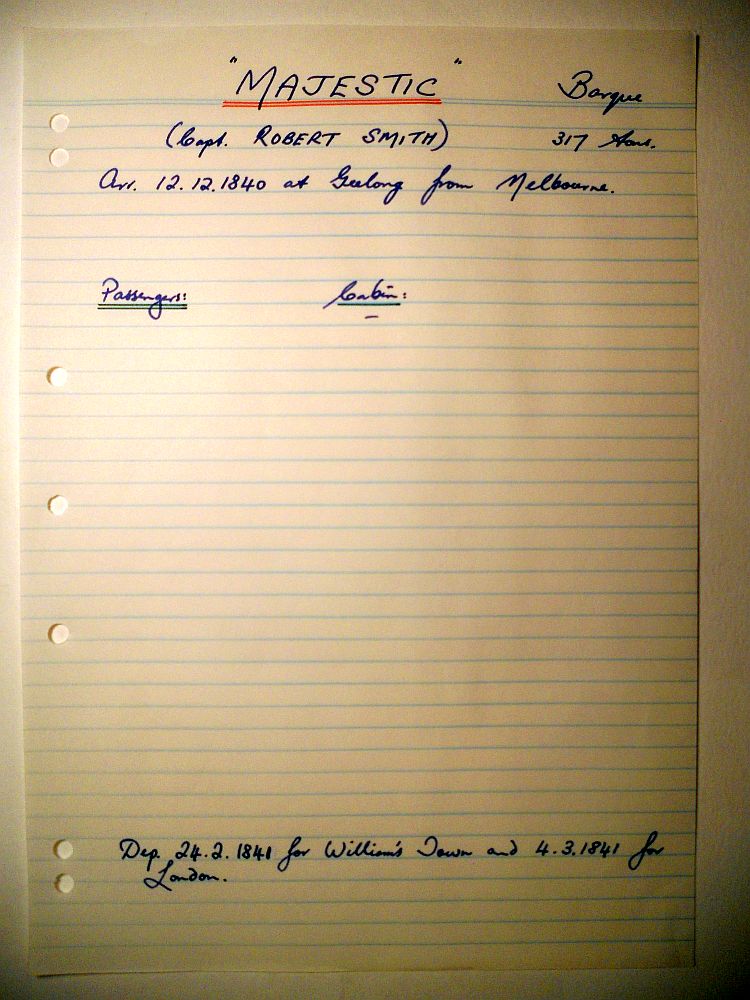 "MAJESTIC" Barque
(Capt. ROBERT SMITH) 317 tons.
Arr. 12.12.1840 at Geelong from Melbourne.
Passengers: Cabin:
–
Dep. 24.2.1841 for William's Town and 4.3.1841 for
London.